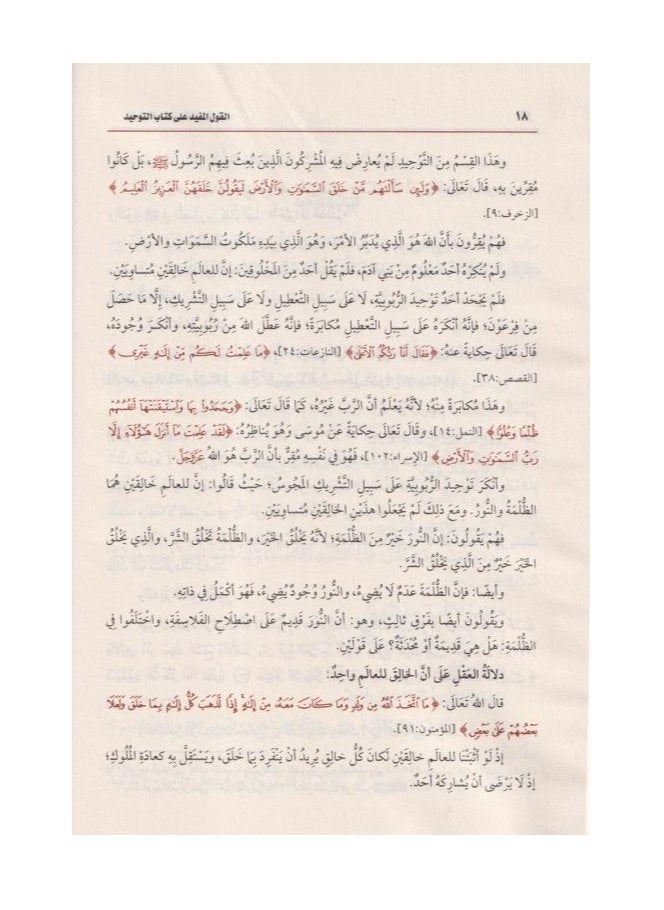 ١٨
القول المفيد على كتاب التوحيد
وَهَذَا القِسْمُ مِنَ التَّوْحِيدِ لَمْ يُعارِضْ فِيهِ المُشْرِكُونَ الَّذِينَ بُعِثَ فِيهِمُ الرَّسُولُ ﷺ، بَلْ كَانُوا
مُقِرِّينَ بِهِ، قَالَ تَعَالَى: ﴿وَلَئِن سَأَلْتَهُم مَّنْ خَلَقَ ٱلسَّمَٰوَٰتِ وَٱلْأَرْضَ لَيَقُولُنَّ خَلَقَهُنَّ ٱلْعَزِيزُ ٱلْعَلِيمُ﴾
[الزخرف:٩].
فَهُمْ يُقِرُّونَ بِأَنَّ اللهَ هُوَ الَّذِي يُدَبِّرُ الأَمْرَ، وَهُوَ الَّذِي بِيَدِهِ مَلَكُوتُ السَّمَوَاتِ والأَرْضِ.
وَلَمْ يُنْكِرْهُ أَحَدٌ مَعْلُومٌ مِنْ بَنِي آدَمَ، فَلَمْ يَقُلْ أَحَدٌ مِنَ المَخْلُوقِينَ: إِنَّ للعالَمِ خَالِقَيْنِ مُتَساوِيَيْنِ.
فَلَمْ يَجْحَدْ أَحَدٌ تَوْحِيدَ الرُّبُوبِيَّةِ، لَا عَلَى سَبِيلِ التَّعْطِيلِ وَلَا عَلَى سَبِيلِ التَّشْرِيكِ، إِلَّا مَا حَصَلَ
مِنْ فِرْعَوْنَ؛ فإِنَّهُ أَنْكَرَهُ عَلَى سَبِيلِ التَّعْطِيلِ مُكابَرَةً؛ فإِنَّهُ عَطَّلَ اللهَ مِنْ رُبُوبِيَّتِهِ، وأَنْكَرَ وُجُودَهُ،
قَالَ تَعَالَى حِكايَةً عنهُ: ﴿فَقَالَ أَنَا۠ رَبُّكُمُ ٱلْأَعْلَىٰ﴾ [النازعات:٢٤]، ﴿مَا عَلِمْتُ لَكُم مِّنْ إِلَٰهٍ غَيْرِى﴾
[القصص:٣٨].
وهَذَا مُكابَرَةٌ مِنْهُ؛ لأَنَّهُ يَعْلَمُ أَنَّ الرَّبَّ غَيْرُهُ، كَمَا قَالَ تَعَالَى: ﴿وَجَحَدُوا۟ بِهَا وَٱسْتَيْقَنَتْهَآ أَنفُسُهُمْ
ظُلْمًا وَعُلُوًّا﴾ [النمل:١٤]، وقَالَ تَعَالَى حِكايَةً عَنْ مُوسَى وَهُوَ يُناظِرُهُ: ﴿لَقَدْ عَلِمْتَ مَآ أَنزَلَ هَٰٓؤُلَآءِ إِلَّا
رَبُّ ٱلسَّمَٰوَٰتِ وَٱلْأَرْضِ﴾ [الإسراء:١٠٢]، فَهُوَ فِي نَفْسِهِ مُقِرٌّ بأَنَّ الرَّبَّ هُوَ اللهُ عَزَّوَجَلَّ.
وأَنْكَرَ تَوْحِيدَ الرُّبُوبِيَّةِ عَلَى سَبِيلِ التَّشْرِيكِ المَجُوسُ؛ حَيْثُ قَالُوا: إِنَّ للعالَمِ خَالِقَيْنِ هُمَا
الظُّلْمَةُ والنُّورُ. ومَعَ ذلكَ لَمْ يَجْعَلُوا هذَيْنِ الخالِقَيْنِ مُتساوِيَيْنِ.
فَهُمْ يَقُولُونَ: إِنَّ النُّورَ خَيْرٌ مِنَ الظُّلْمَةِ؛ لأَنَّهُ يَخْلُقُ الخَيْرَ، والظُّلْمَةُ تَخْلُقُ الشَّرَّ، والَّذِي يَخْلُقُ
الخَيْرَ خَيْرٌ مِنَ الَّذِي يَخْلُقُ الشَّرَّ.
وأَيضًا: فإِنَّ الظُّلْمَةَ عَدَمٌ لَا يُضِيءُ، والنُّورُ وُجُودٌ يُضِيءُ، فَهُوَ أَكْمَلُ فِي ذاتِهِ.
ويَقُولُونَ أَيضًا بفَرْقٍ ثالِثٍ، وهو: أَنَّ النُّورَ قَدِيمٌ عَلَى اصْطِلَاحِ الفَلاسِفَةِ، واخْتَلَفُوا فِي
الظُّلْمَةِ: هَلْ هِيَ قَدِيمَةٌ أَوْ مُحْدَثَةٌ؟ عَلَى قَوْلَيْنِ.
دلالَةُ العَقْلِ عَلَى أَنَّ الخالِقَ للعالَمِ واحِدٌ:
قَالَ اللهُ تَعَالَى: ﴿مَا ٱتَّخَذَ ٱللَّهُ مِن وَلَدٍ وَمَا كَانَ مَعَهُۥ مِنْ إِلَٰهٍ إِذًا لَّذَهَبَ كُلُّ إِلَٰهٍۭ بِمَا خَلَقَ وَلَعَلَا
بَعْضُهُمْ عَلَىٰ بَعْضٍ﴾ [المؤمنون:٩١].
إِذْ لَوْ أَثْبَتْنَا للعالَمِ خالِقَيْنِ لَكانَ كُلُّ خالِقٍ يُرِيدُ أَنْ يَنْفَرِدَ بِمَا خَلَقَ، ويَسْتَقِلَّ بِهِ كعادَةِ المُلُوكِ؛
إِذْ لَا يَرْضَى أَنْ يُشارِكَهُ أَحَدٌ.